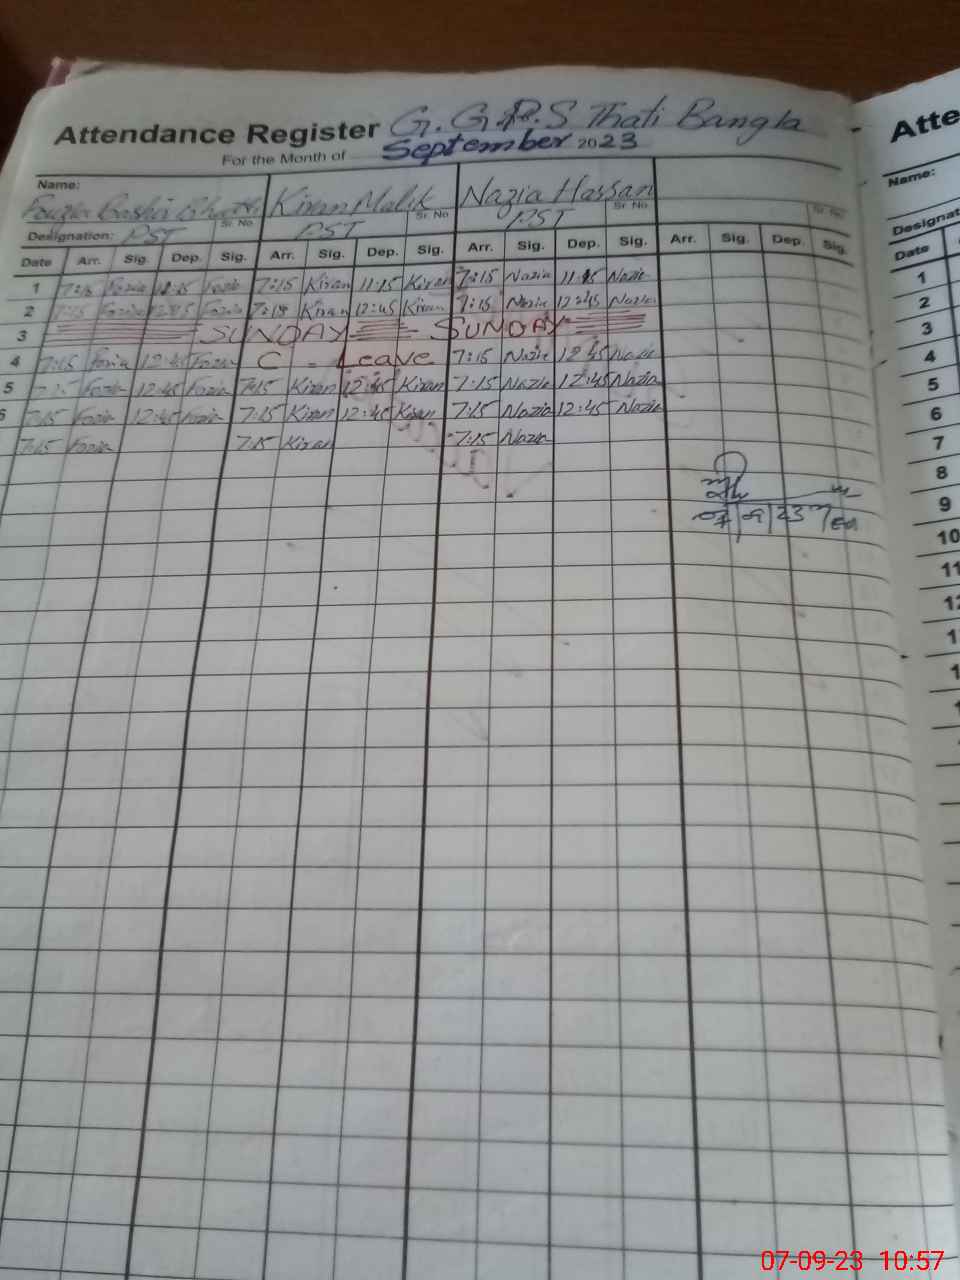 Attendance Register G.G.P.S Thati Bangla
For the Month of September 2023
Name: Kiran Malik Nazia Hassan
Sr. No Sr. No Sr. No Sr. No
Designation: PST PST PST
Date Arr. Sig. Dep. Sig. Arr. Sig. Dep. Sig. Arr. Sig. Dep. Sig. Arr. Sig. Dep. Sig.
1 7:15 Fozia Fozia 7:15 Kiran 11:15 Kiran 7:15 Nazia 11:15 Nazia
2 7:15 Fozia 12:45 Fozia 7:15 Kiran 12:45 Kiran 7:15 Nazia 12:45 Nazia
3 SUNDAY SUNDAY
4 7:15 Fozia 12:45 Fozia C - Leave 7:15 Nazia 12:45 Nazia
5 7:15 Fozia 12:45 Fozia 7:15 Kiran 12:45 Kiran 7:15 Nazia 12:45 Nazia
6 7:15 Fozia 12:45 Fozia 7:15 Kiran 12:45 Kiran 7:15 Nazia 12:45 Nazia
7:15 Fozia 7:15 Kiran 7:15 Nazia
07/09/23
Atte
Name:
Designat
Date
1
2
3
4
5
6
7
8
9
10
11
07-09-23 10:57